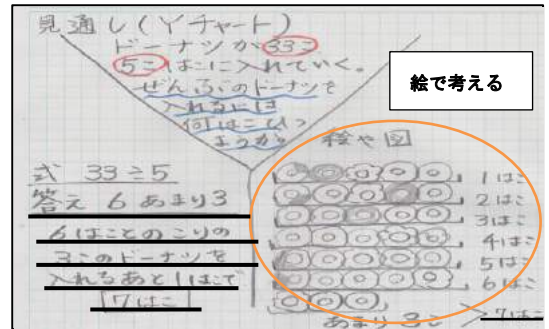 見通し(Yチャート)
ドーナツが33こ
5こはこに入れていく。
ぜんぶのドーナツを
入れるには
何はこひつ
ようか
絵で考える
式 33÷5
答え 6あまり3
6はことのこりの
3このドーナツを
入れるあと1はこで
7はこ
絵や図
1はこ
2はこ
3はこ
4はこ
5はこ
6はこ
あまり3こ
7はこ